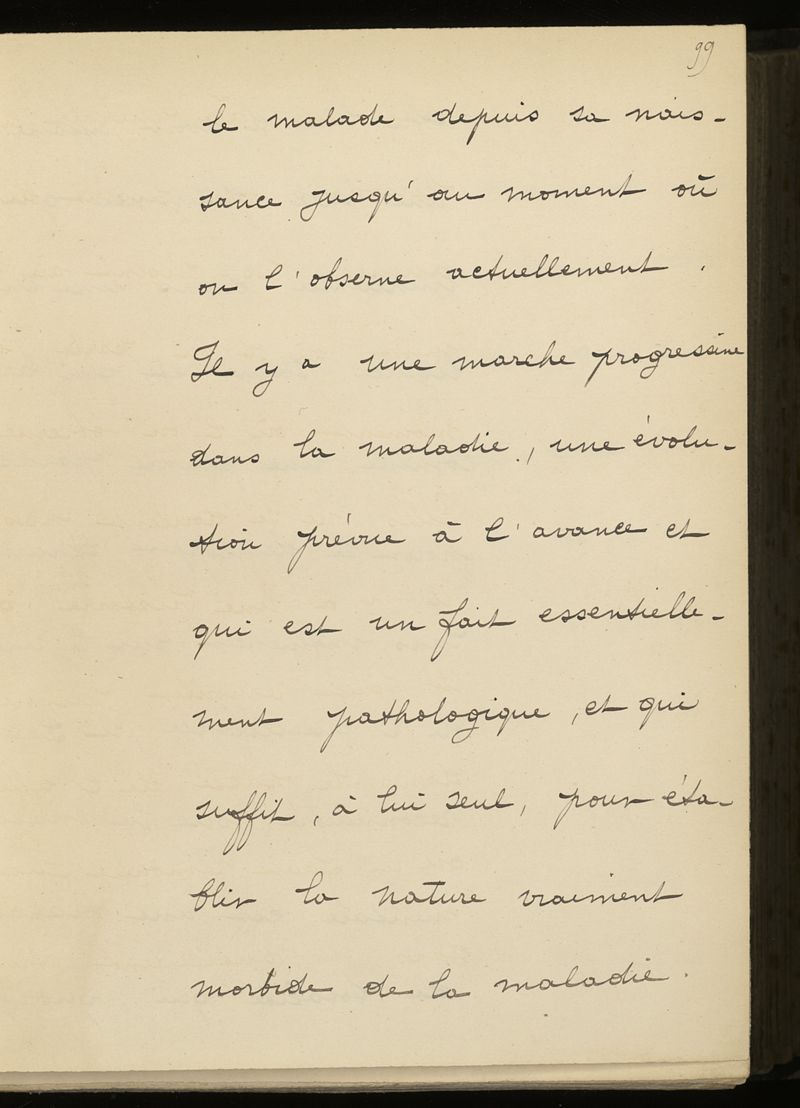 99
le malade depuis sa nais-
sance jusqu'au moment où
on l'observe actuellement.
Il y a une marche progressive
dans la maladie, une évolu-
tion prévue à l'avance et
qui est un fait essentielle-
ment pathologique, et qui
suffit, à lui seul, pour éta-
blir la nature vraiment
morbide de la maladie.